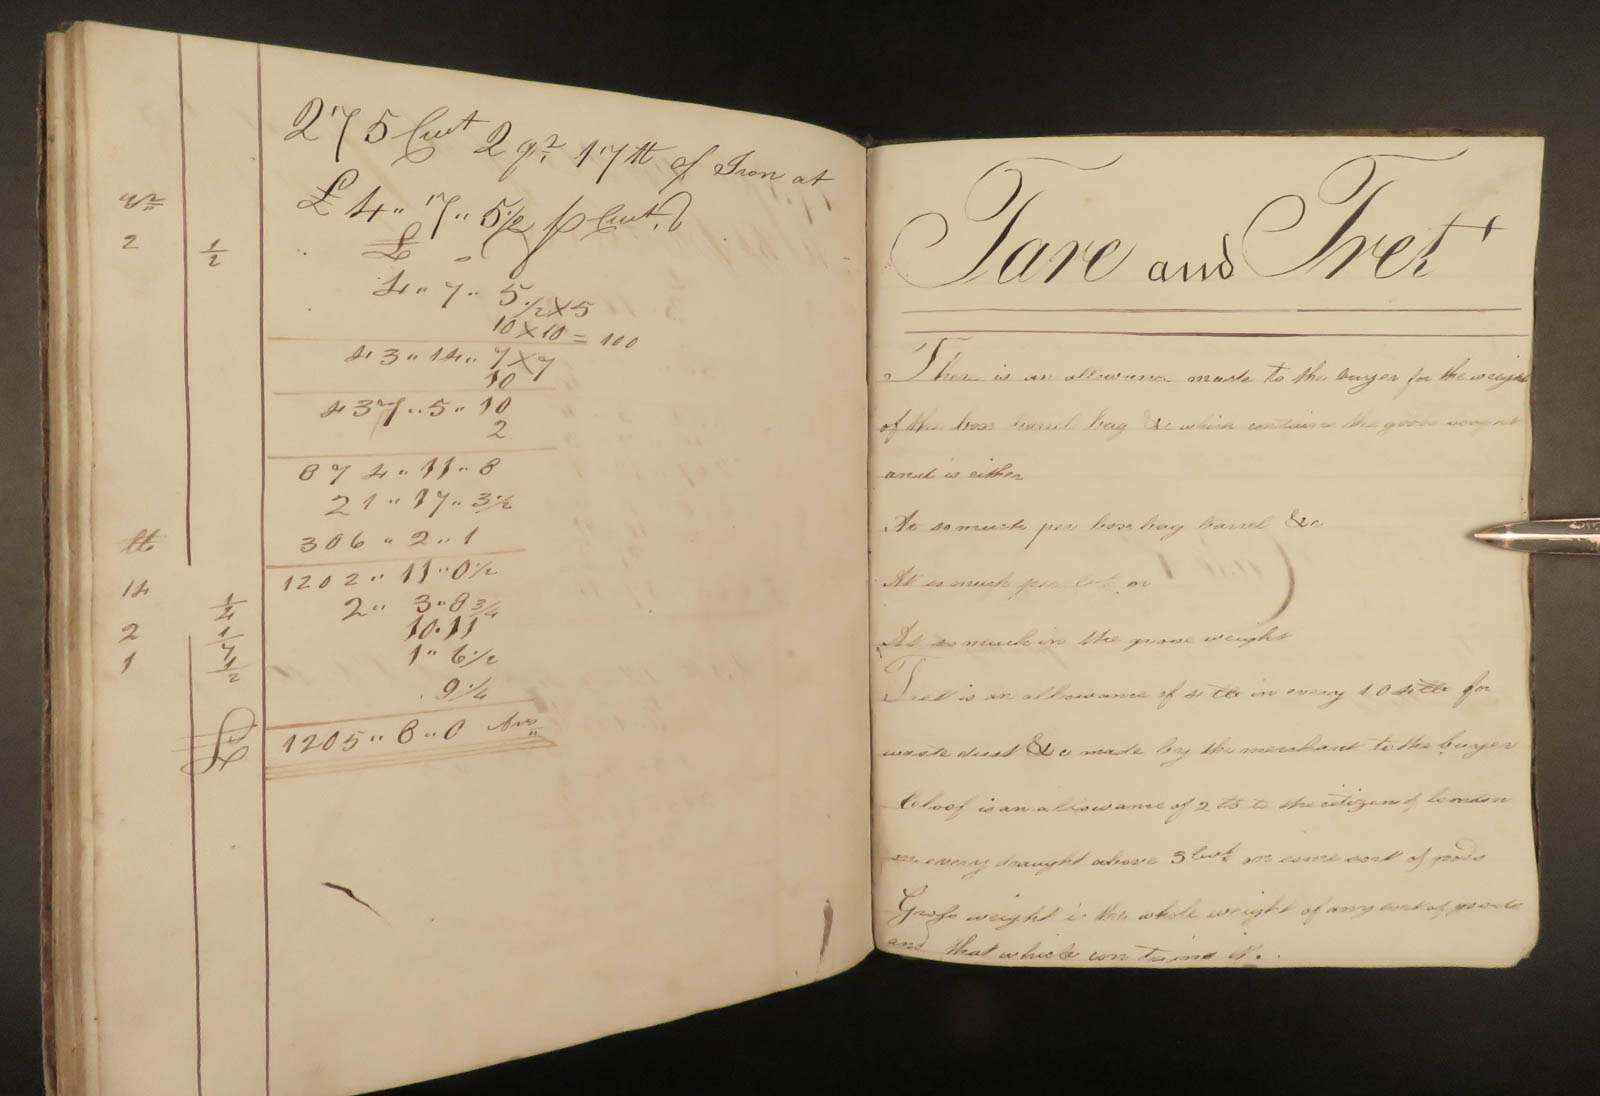 275 Cwt 2 qr 17 lb of Iron at
£ 4 " 7 " 5 1/2 p Cwt ?
£
4 " 7 " 5 1/2 X 5
10 X 10 = 100
43 " 14 " 7 X 7
10
437 " 5 " 10
2
qr
2 1/2
874 " 11 " 8
21 " 17 " 3 1/2
306 " 2 " 1
lb
1202 " 11 " 0 1/2
14 1/4 2 " 3 " 8 3/4
2 1/7 10 " 11
1 1/2 1 " 6 1/2
9 1/4
£ 1205 " 8 " 0 Ans
Tare and Tret
There is an allowance made to the buyer for the weight
of the box barrel bag &c which contains the goods weight
and is either
At so much per box bag barrel &c
At so much per cwt or
At so much in the gross weight
Tret is an allowance of 4 lb in every 104 lb for
waste dust &c made by the merchant to the buyer
Cloof is an allowance of 2 lb to the citizens of london
on every draught above 3 Cwt on some sort of goods
Gross weight is the whole weight of any sort of goods
and that which contains it.